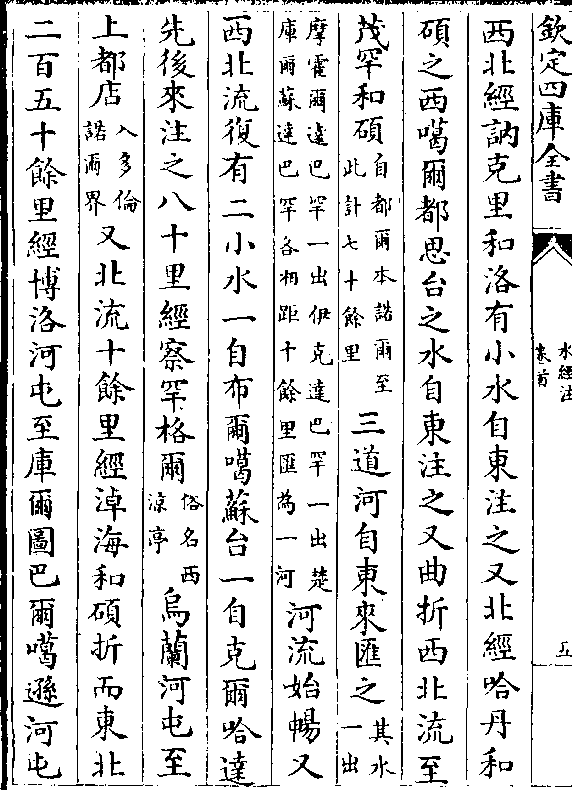 欽定四庫全書
水經注
卷首
五
西北經訥克里和洛有小水自東注之又北經哈丹和
碩之西噶爾都思台之水自東注之又曲折西北流至
茂罕和碩自都爾本諾爾至此計七十餘里三道河自東來匯之其水一出
摩霍爾達巴罕一出伊克達巴罕一出楚庫爾蘇達巴罕各相距十餘里匯為一河河流始暢又
西北流復有二小水一自布爾噶蘇台一自克爾哈達
先後來注之八十里經察罕格爾俗名西涼亭烏蘭河屯至
上都店入多倫諾爾界又北流十餘里經淖海和碩折而東北
二百五十餘里經博洛河屯至庫爾圖巴爾噶遜河屯